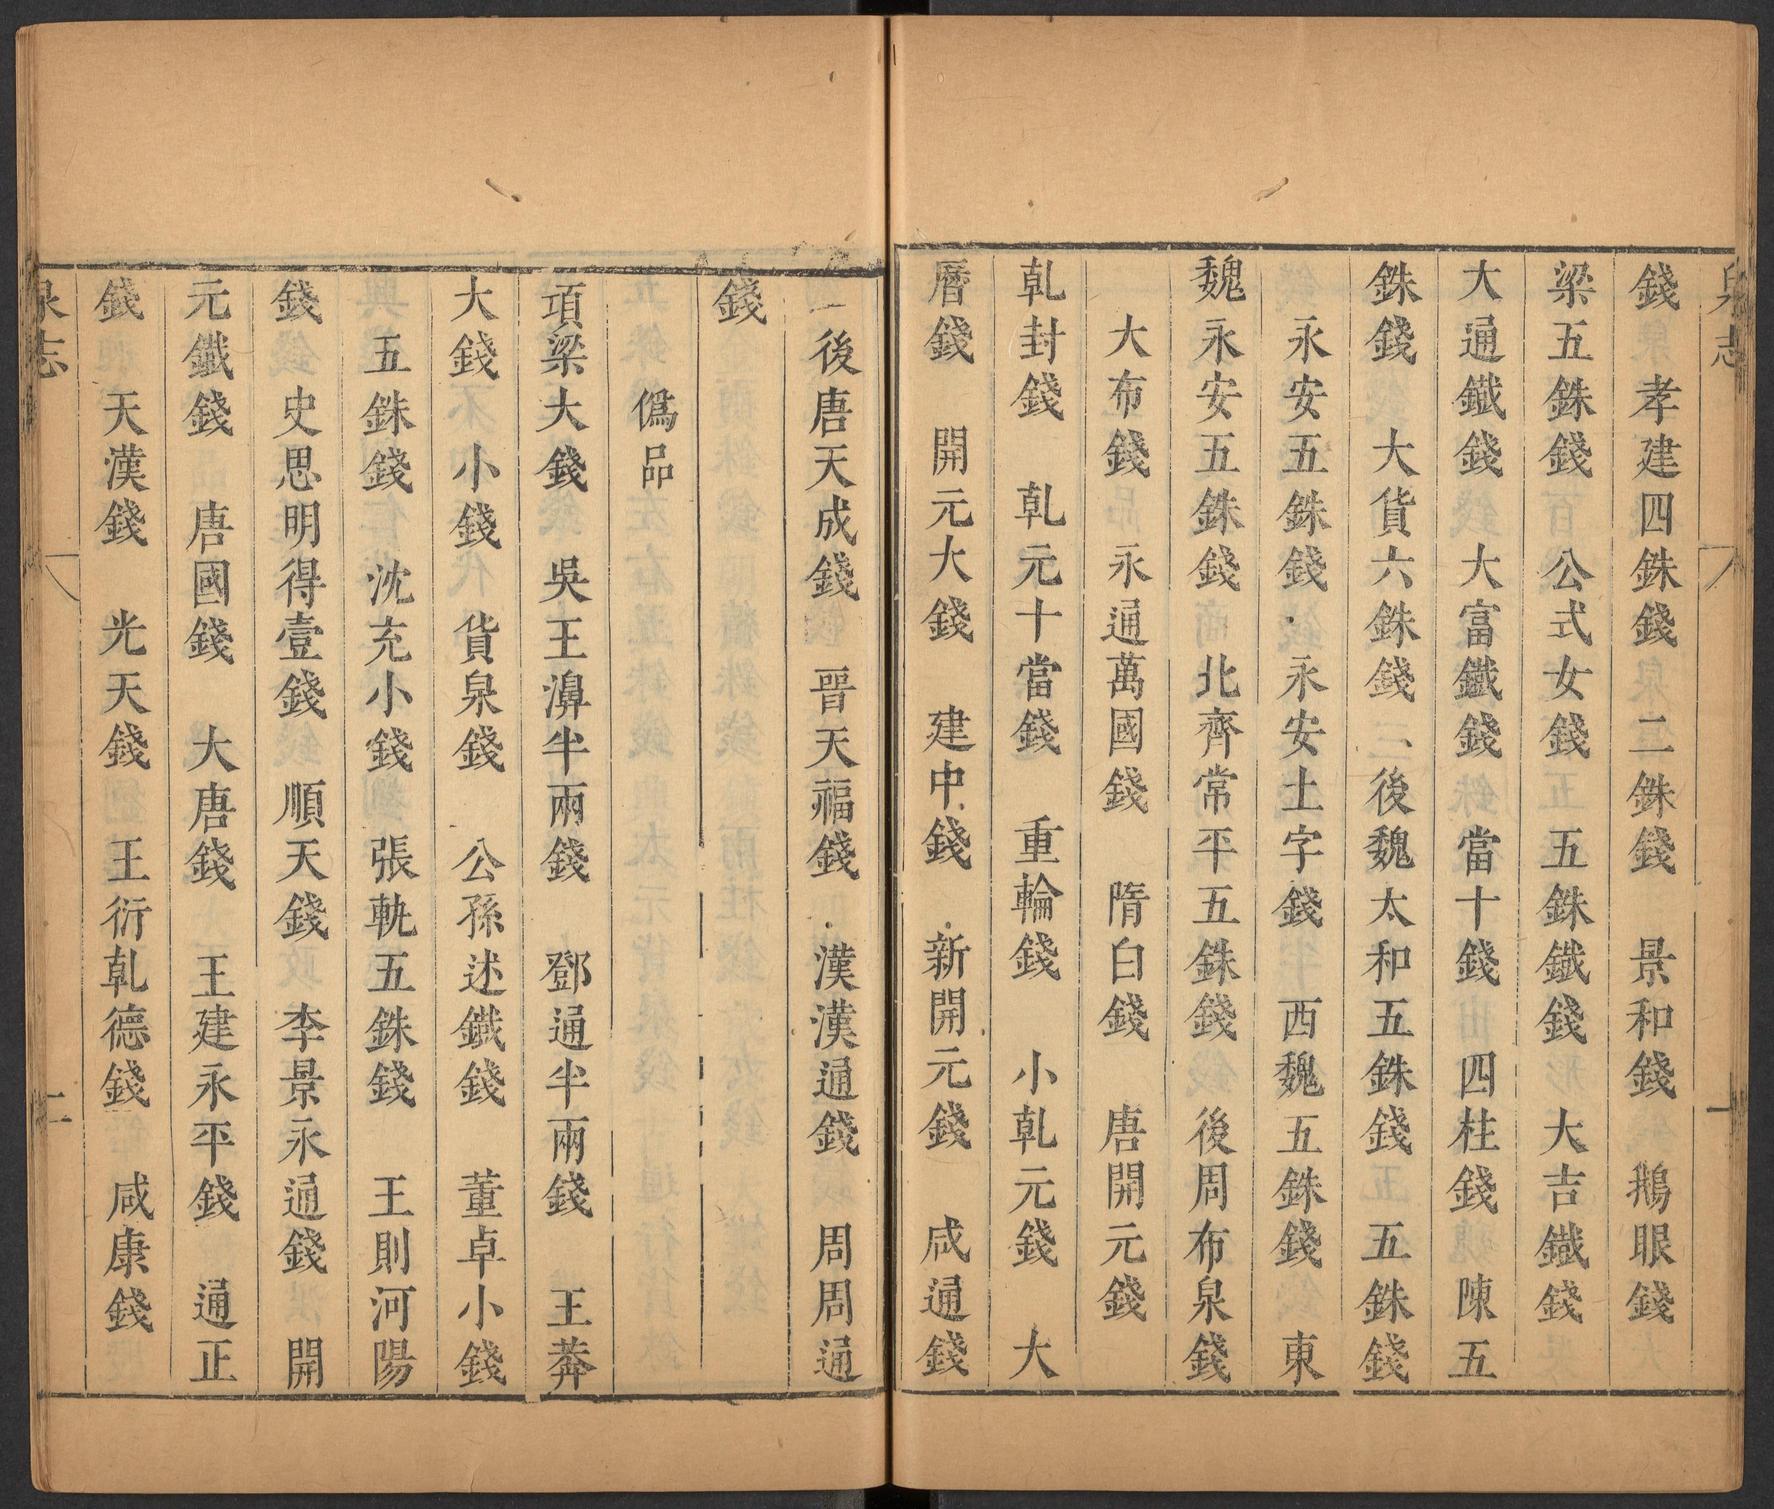 泉志
一
錢　孝建四銖錢　二銖錢　景和錢　鵝眼錢
梁五銖錢　公式女錢　五銖鐵錢　大吉鐵錢
大通鐵錢　大富鐵錢　當十錢　四柱錢　陳五
銖錢　大貨六銖錢　後魏太和五銖錢　五銖錢
永安五銖錢　永安土字錢　西魏五銖錢　東
魏永安五銖錢　北齊常平五銖錢　後周布泉錢
大布錢　永通萬國錢　隋白錢　唐開元錢
乹封錢　乹元十當錢　重輪錢　小乹元錢　大
曆錢　開元大錢　建中錢　新開元錢　咸通錢
後唐天成錢　晉天福錢　漢漢通錢　周周通
錢
僞品
項梁大錢　吳王濞半兩錢　鄧通半兩錢　王莽
大錢　小錢　貨泉錢　公孫述鐵錢　董卓小錢
五銖錢　沈充小錢　張軌五銖錢　王則河陽
錢　史思明得壹錢　順天錢　李景永通錢　開
元鐵錢　唐國錢　大唐錢　王建永平錢　通正
錢　天漢錢　光天錢　王衍乹德錢　咸康錢
泉志
二